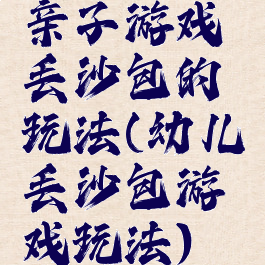 亲子游戏
丢沙包的
玩法(幼儿
丢沙包游
戏玩法)